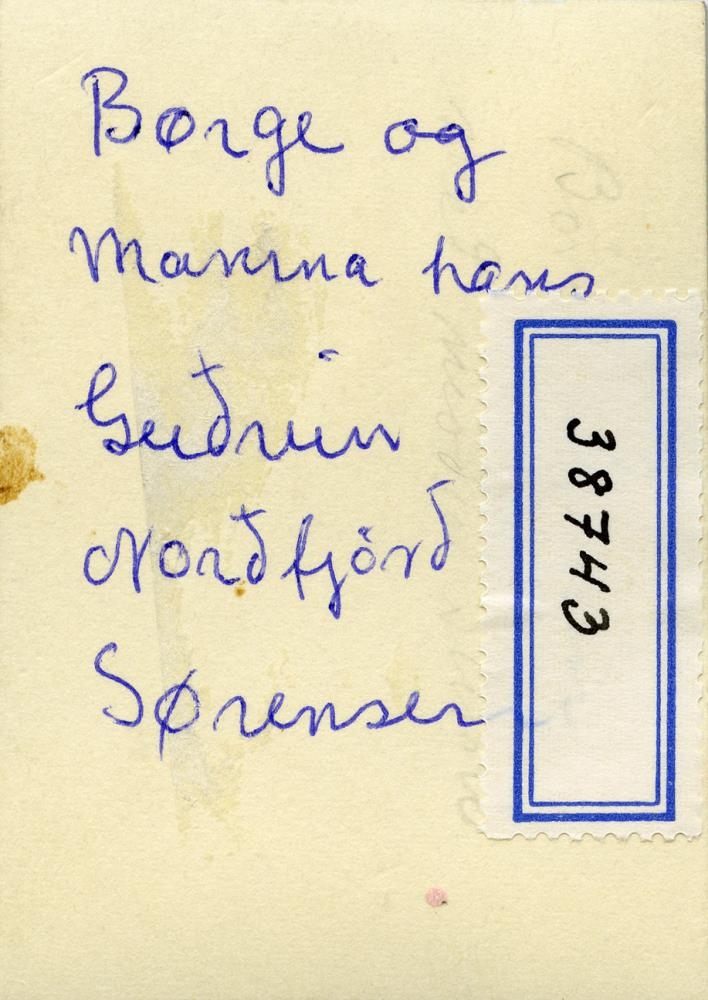 Børge og
Mamma hans
Guðrún
Norðfjörð
Sørensen
38743